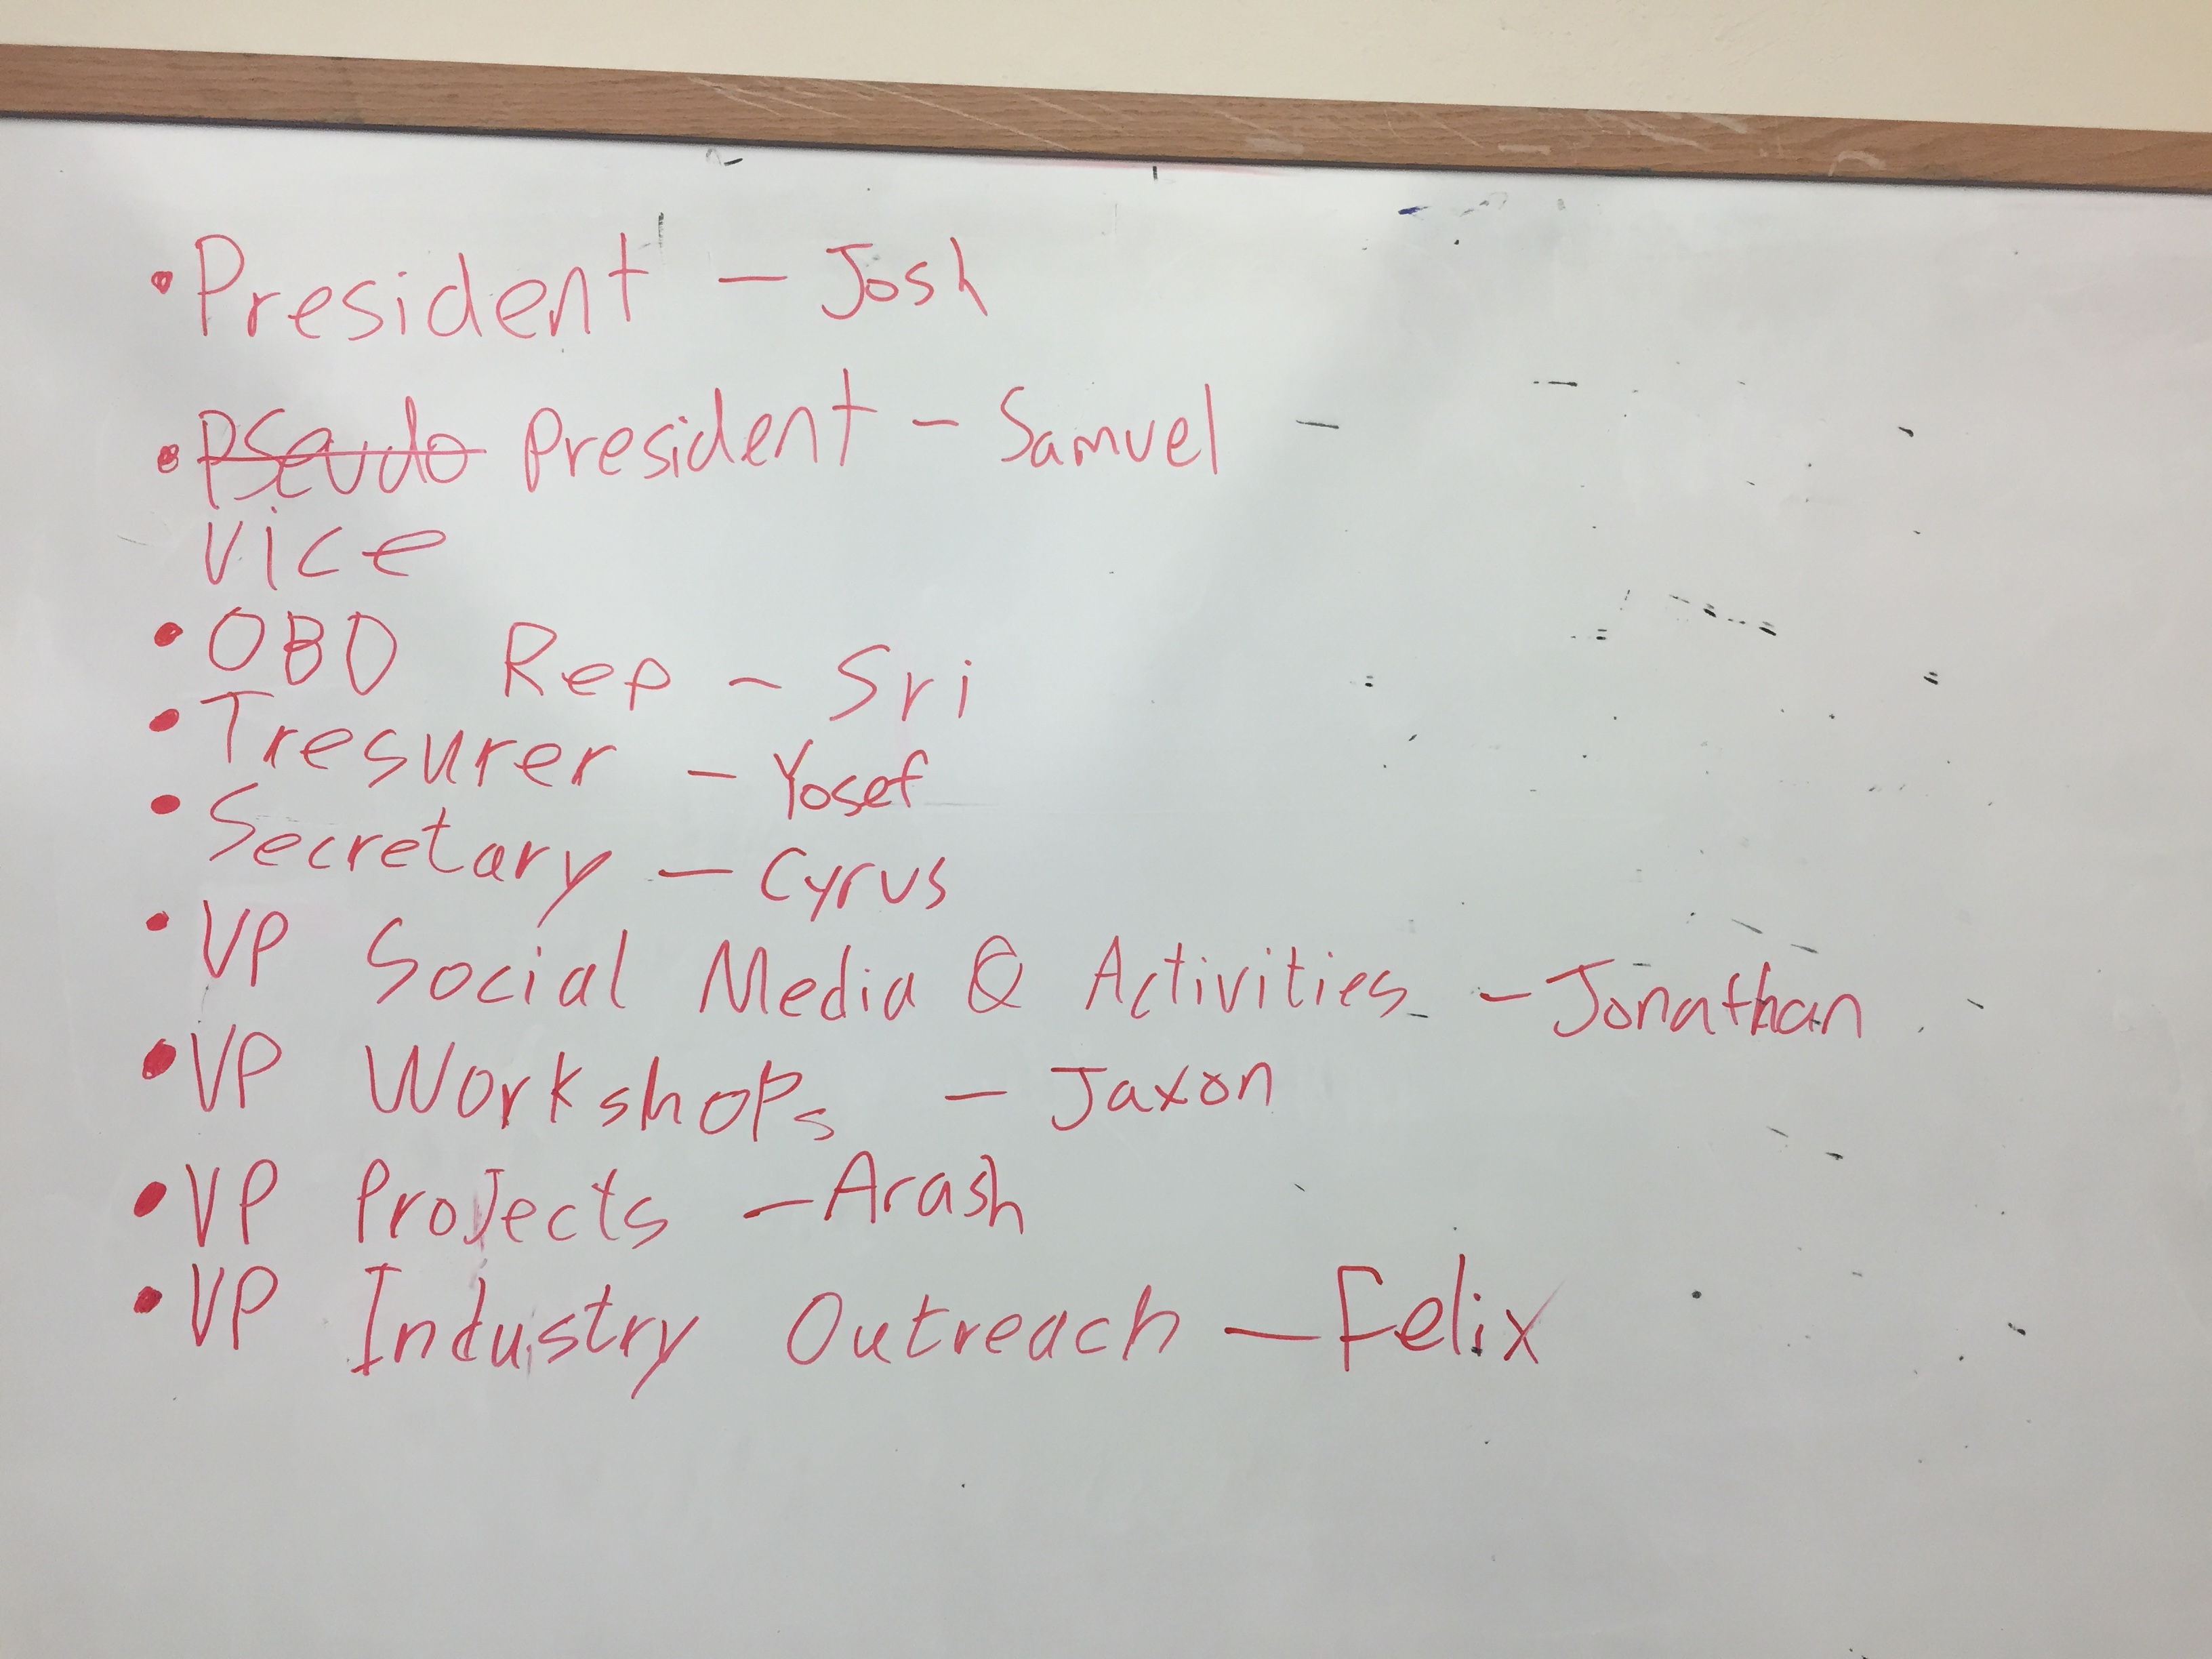 • President – Josh
• Pseudo President – Samuel
Vice
• OBD Rep – Sri
• Tresurer – Yosef
• Secretary – Cyrus
• VP Social Media & Activities – Jonathan
• VP Workshops – Jaxon
• VP Projects – Arash
• VP Industry Outreach – Felix